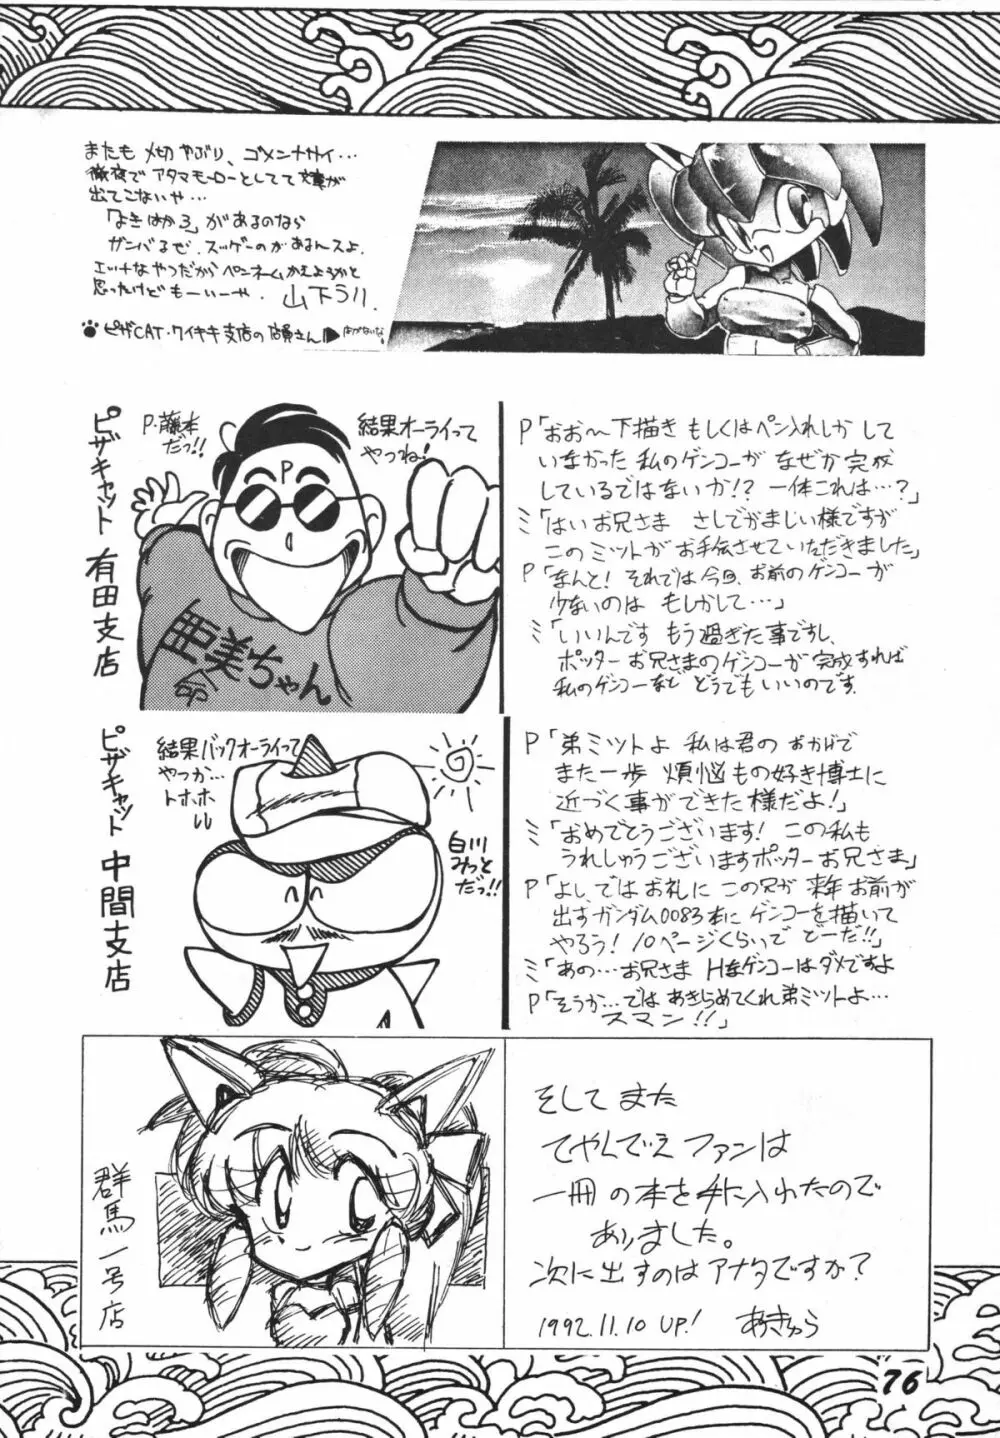 またも〆切やぶり、ゴメンナサイ…
徹夜でアタマモーローとしてて文章が
出てこないや…
「よきはかろ」があるのなら
ガンバるぜ、スッゲーのがあるんスよ。
エッチなやつだからペンネームかえようかと
思ったけどもーいーや. 山下うり
ピザCAT・ワイキキ支店の店員さん
ピザキャット 有田支店
P・藤本
だっ!!
P
結果オーライって
やつね!
亜美ちゃん
命
P「おお〜下描きもしくはペン入れしかして
いなかった私のゲンコーがなぜか完成
しているではないか!? 一体これは…?」
ミ「はいお兄さま さしでがましい様ですが
このミットがお手伝させていただきました」
P「なんと! それでは今回、お前のゲンコーが
少ないのは もしかして…」
ミ「いいんです もう過ぎた事ですし、
ポッターお兄さまのゲンコーが完成すれば
私のゲンコーなど どうでもいいのです.
ピザキャット 中間支店
結果バックオーライって
やつか…
トホホ
白川
みっと
だっ!!
P「弟ミットよ 私は君のおかげで
また一歩 煩悩もの好き博士に
近づく事ができた様だよ!」
ミ「おめでとうございます! この私も
うれしゅうございますポッターお兄さま」
P「よし、ではお礼に この兄が来年お前が
出すガンダム0083本にゲンコーを描いて
やろう! 10ページくらいでどーだ!!」
ミ「あの…お兄さま Hなゲンコーはダメですよ
P「そうか…ではあきらめてくれ弟ミットよ…
スマン!!」
群馬一号店
そしてまた
てやんでえファンは
一冊の本を手に入れたので
ありました。
次に出すのはアナタですか?
1992.11.10 UP! あきゅら
76